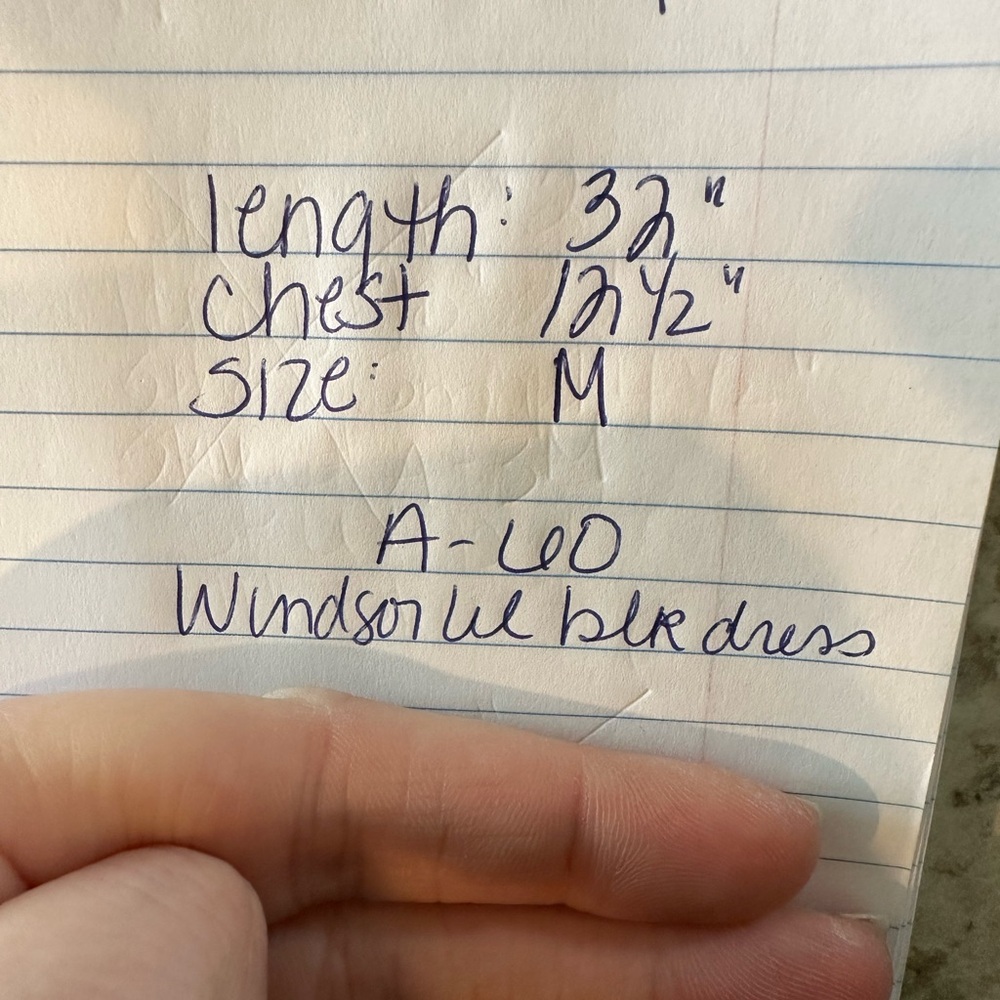 length: 32"
chest 12 1/2"
size: M
A-60
Windsor lil blk dress